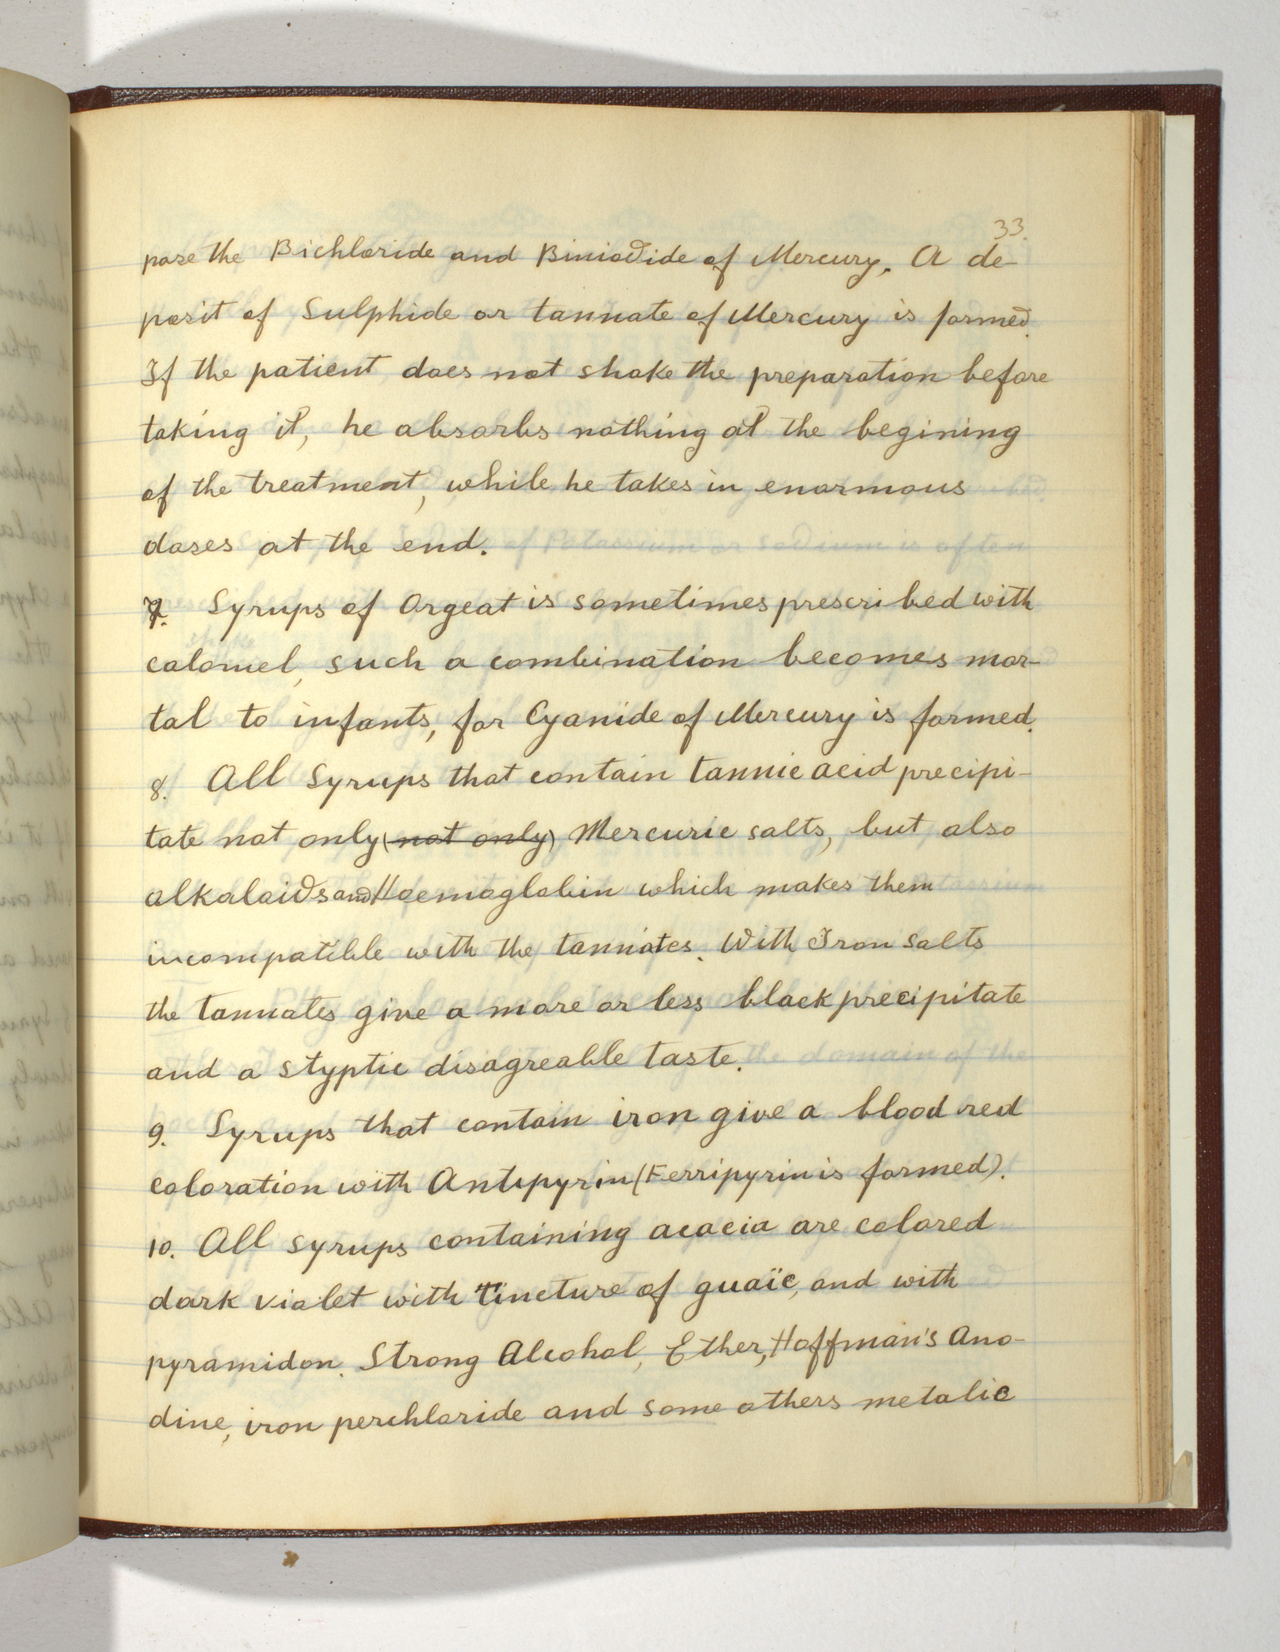 33.
pose the Bichloride and Biniodide of Mercury. A de-
posit of Sulphide or tannate of Mercury is formed.
If the patient does not shake the preparation before
taking it, he absorbs nothing at the begining
of the treatment, while he takes in enormous
doses at the end.
7. Syrups of Orgeat is sometimes prescribed with
calomel, such a combination becomes mor-
tal to infants, for Cyanide of Mercury is formed.
8. All Syrups that contain tannic acid precipi-
tate not only (not only) Mercuric salts, but also
alkaloids and Hoemoglobin which makes them
incompatible with the tannates. With Iron salts
the tannates give a more or less black precipitate
and a styptic disagreable taste.
9. Syrups that contain iron give a blood red
coloration with Antipyrin (Ferripyrin is formed).
10. All syrups containing acacia are colored
dark violet with Tincture of guaïc, and with
pyramidon. Strong Alcohol, Ether, Hoffman's Ano-
dine, iron perchloride and some others metalic